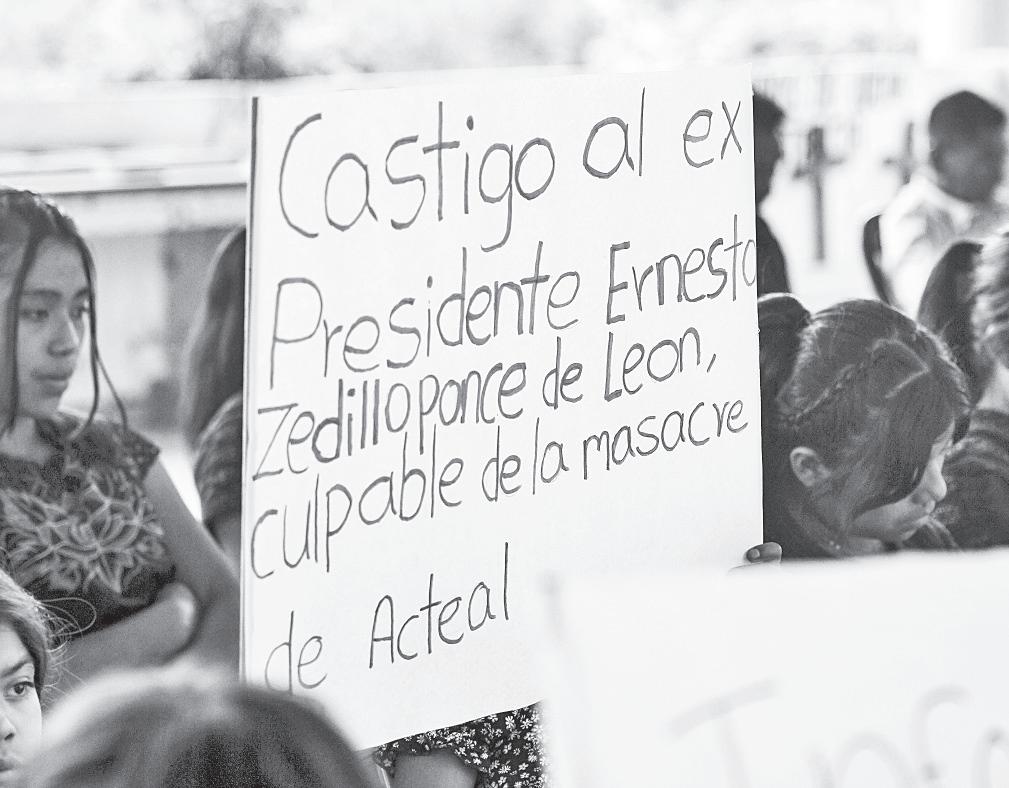 Castigo al ex
Presidente Ernesto
Zedillo ponce de Leon,
culpable de la masacre
de Acteal